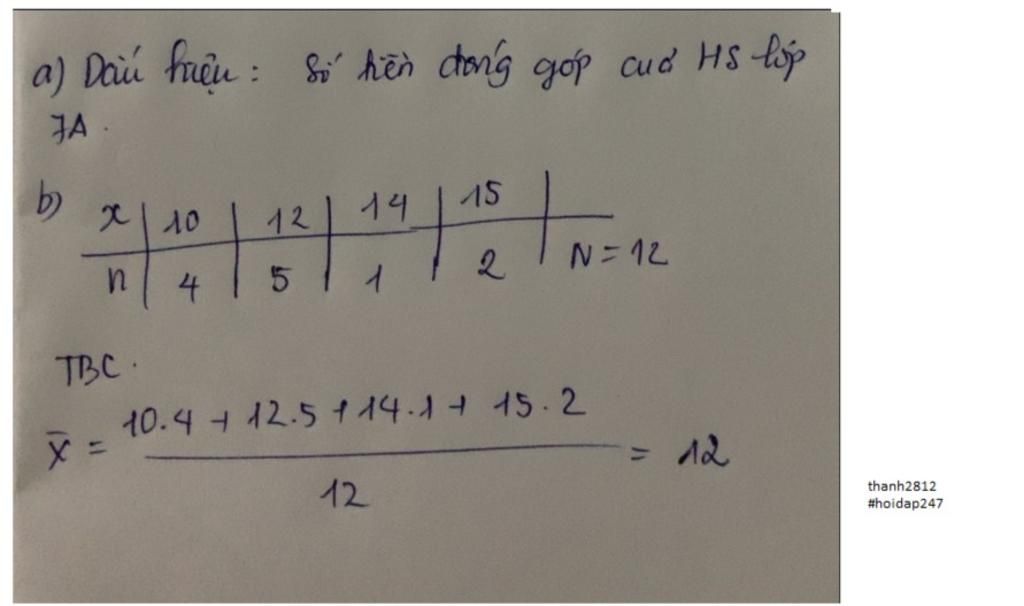 a) Dấu hiệu : Số tiền đóng góp của HS lớp
7A .
b) x | 10 | 12 | 14 | 15 |
n | 4 | 5 | 1 | 2 | N = 12
TBC .
10.4 + 12.5 + 14.1 + 15.2
X̄ = = 12
12
thanh2812
#hoidap247